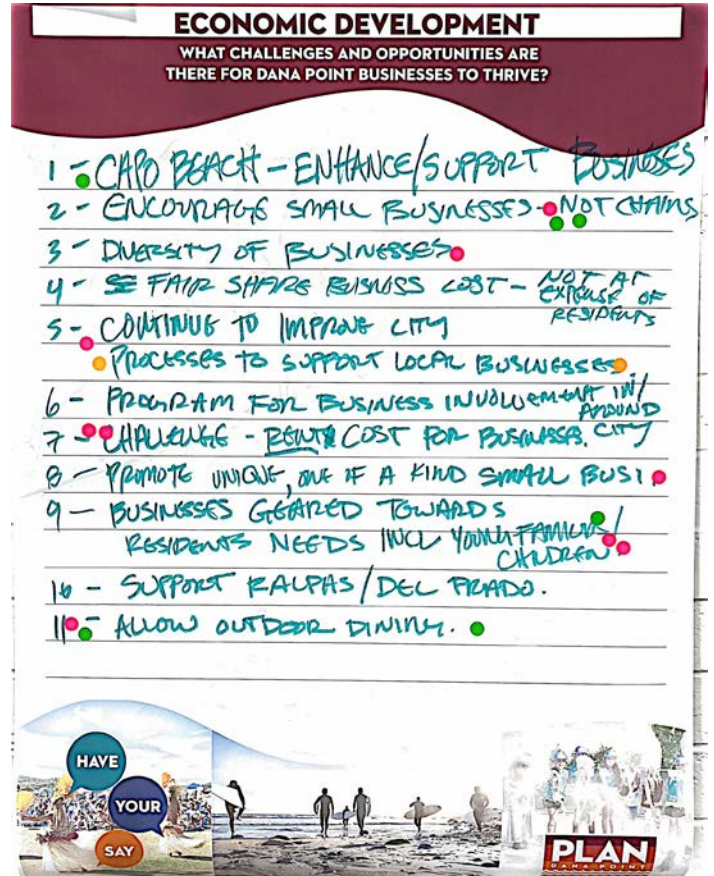 ECONOMIC DEVELOPMENT
WHAT CHALLENGES AND OPPORTUNITIES ARE
THERE FOR DANA POINT BUSINESSES TO THRIVE?
1 - CAPO BEACH - ENHANCE/SUPPORT BUSINESSES
2 - ENCOURAGE SMALL BUSINESSES - NOT CHAINS
3 - DIVERSITY OF BUSINESSES
4 - FAIR SHARE BUSINESS COST - NOT AT
EXPENSE OF
RESIDENTS
5 - CONTINUE TO IMPROVE CITY
PROCESSES TO SUPPORT LOCAL BUSINESSES.
6 - PROGRAM FOR BUSINESS INVOLVEMENT IN/
AROUND
CITY
7 - CHALLENGE - RENT COST FOR BUSINESSES.
8 - PROMOTE UNIQUE, ONE OF A KIND SMALL BUSI.
9 - BUSINESSES GEARED TOWARDS
RESIDENTS NEEDS INCL YOUNG FAMILIES/
CHILDREN
10 - SUPPORT RALPHS/DEL PRADO.
11 - ALLOW OUTDOOR DINING.
HAVE
YOUR
SAY
PLAN
DANA POINT